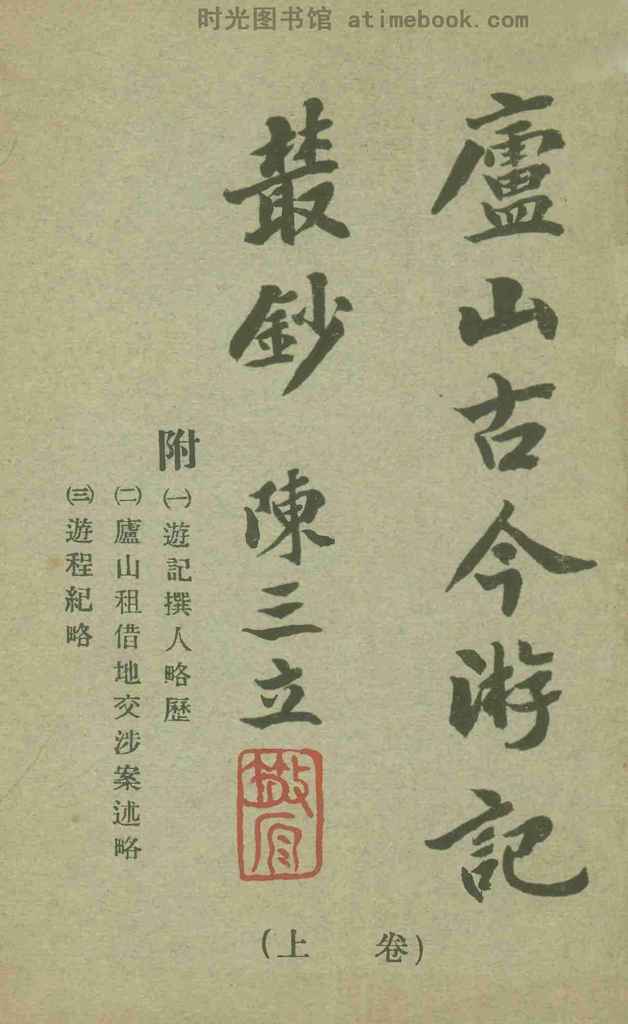 时光图书馆 atimebook.com
廬山古今游記
叢鈔 陳三立
散原
附
㈠遊記撰人略歷
㈡廬山租借地交涉案述略
㈢遊程紀略
(卷上)